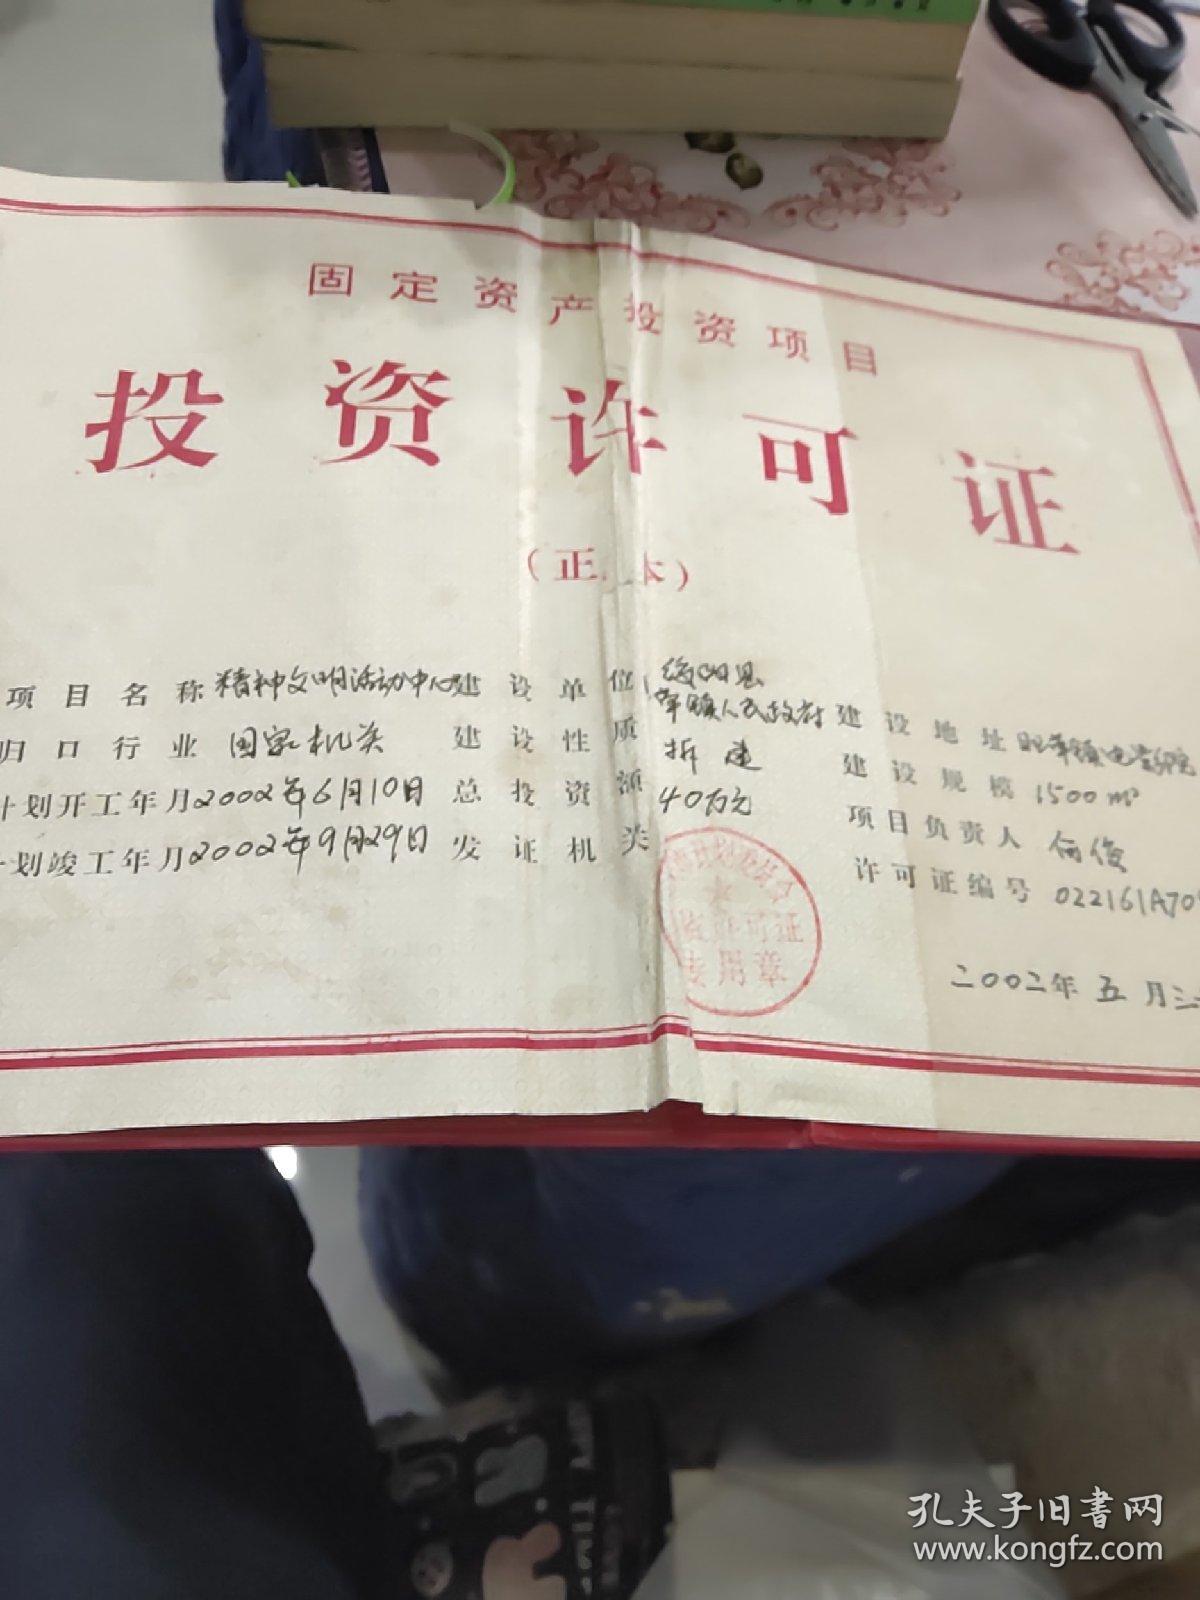 固定资产投资项目
投资许可证
(正 本)
项目名称 精神文明活动中心 建设单位 县 镇人民政府 建设地址
归口行业 国家机关 建设性质 拆建 建设规模 1500m²
计划开工年月 2002年6月10日 总投资额 40万元 项目负责人 何俊
计划竣工年月 2002年9月29日 发证机关 许可证编号 022161A70
计划委员会
资许可证
专用章
二00二年 五 月三
孔夫子旧书网
www.kongfz.com